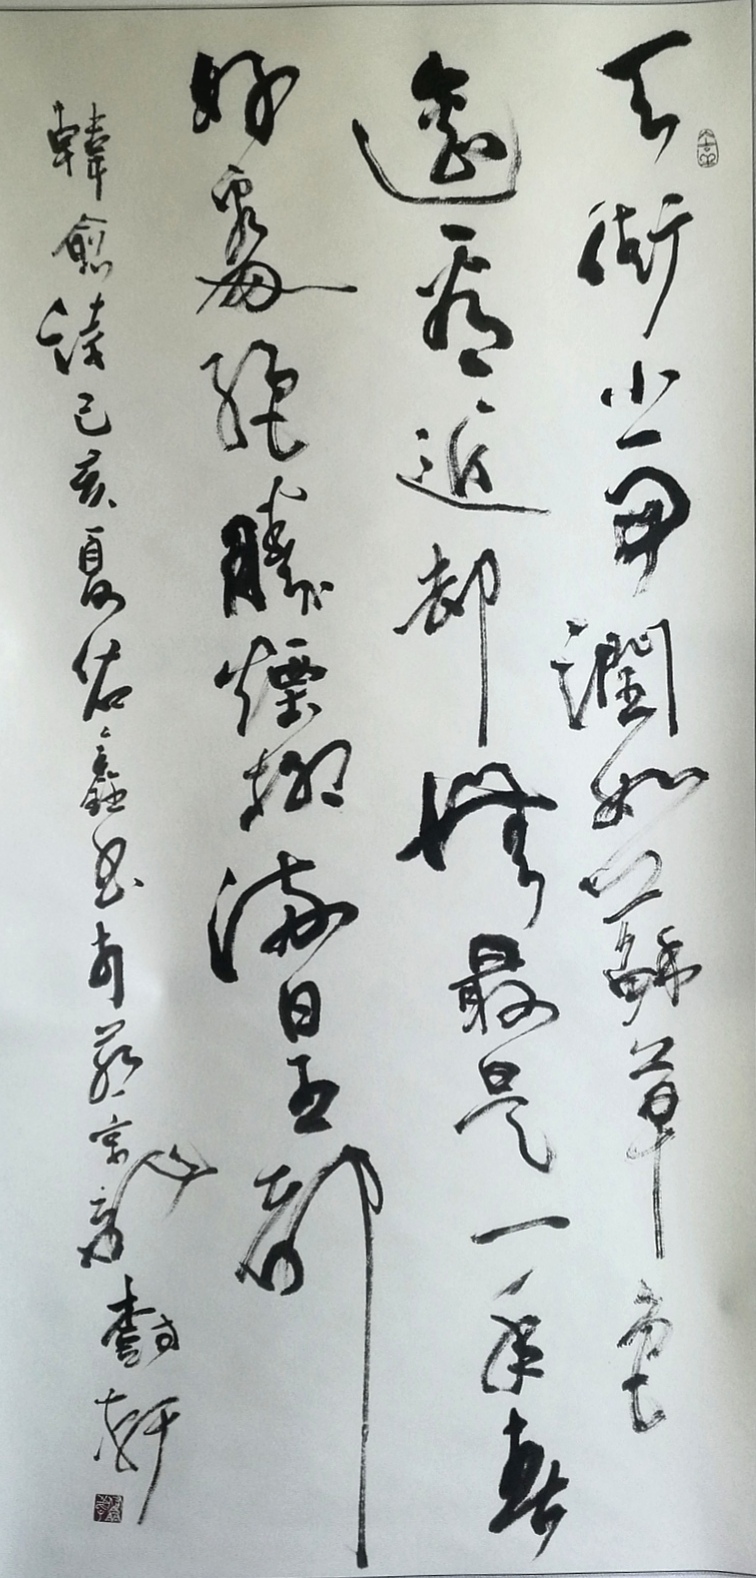 天街小雨潤如蘇草色
遙看近却無最是一年春
好處絕勝煙柳滿皇都
韓愈詩己亥夏佑鑫書於燕京